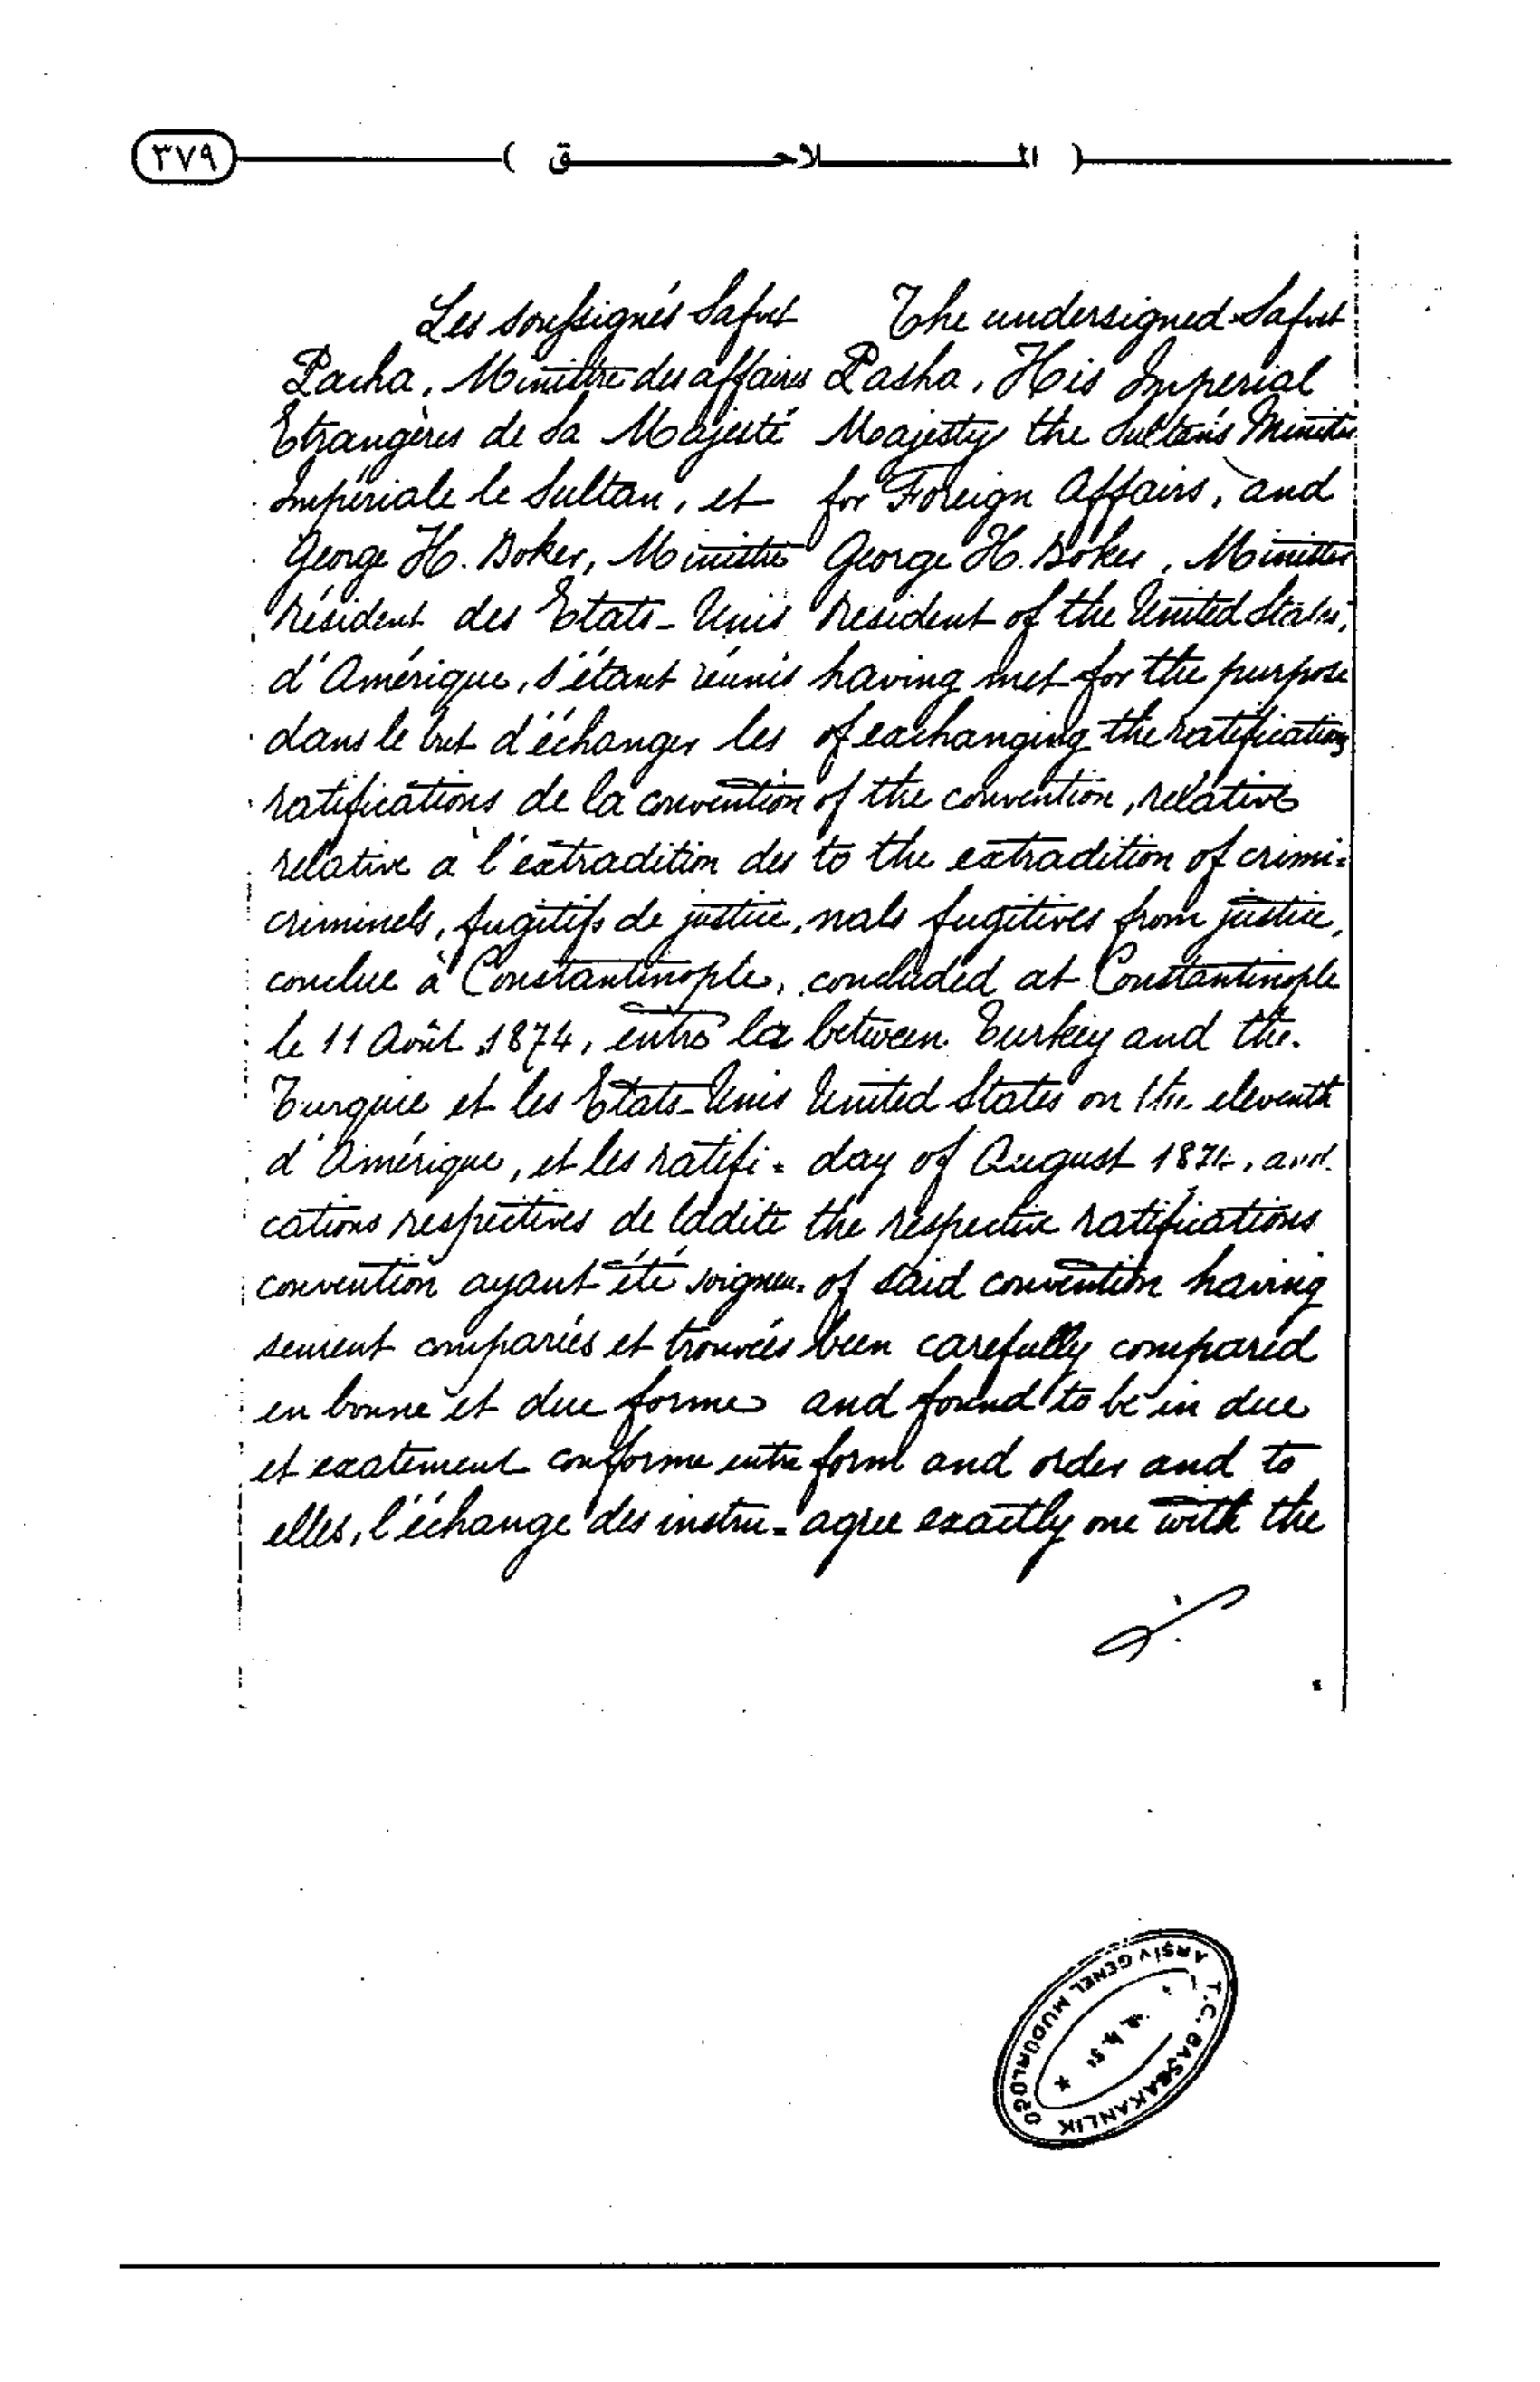 ٣٧٩
( الملاحق )
Les soussignés Safvet
Pacha, Ministre des affaires
Etrangères de Sa Majesté
Impériale le Sultan, et
George H. Boker, Ministre
résident des Etats-Unis
d'Amérique, s'étant réunis
dans le but d'échanger les
ratifications de la convention
relative à l'extradition des
criminels, fugitifs de justice,
conclue à Constantinople,
le 11 Août 1874, entre la
Turquie et les Etats-Unis
d'Amérique, et les ratifi=
cations respectives de ladite
convention ayant été soigneu=
sement comparées et trouvées
en bonne et due forme
et exatement conforme entre
elles, l'échange des instru=
The undersigned Safvet
Pasha, His Imperial
Majesty the Sultan's Minister
for Foreign Affairs, and
George H. Boker, Minister
resident of the United States,
having met for the purpose
of exchanging the ratifications
of the convention, relative
to the extradition of crimi=
nals fugitives from justice,
concluded at Constantinople
between Turkey and the
United States on the eleventh
day of August 1874, and
the respective ratifications
of said convention having
been carefully compared
and found to be in due
form and order and to
agree exactly one with the
T.C. BAŞBAKANLIK
ARŞİV GENEL MÜDÜRLÜĞÜ